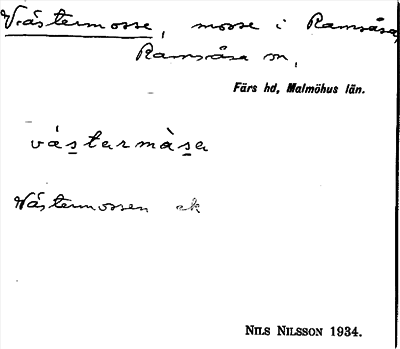 Västermosse, mosse i Ramsåsa,
Ramsåsa sn,
Färs hd, Malmöhus län.
västarmàsa
Västermossen ek
NILS NILSSON 1934.